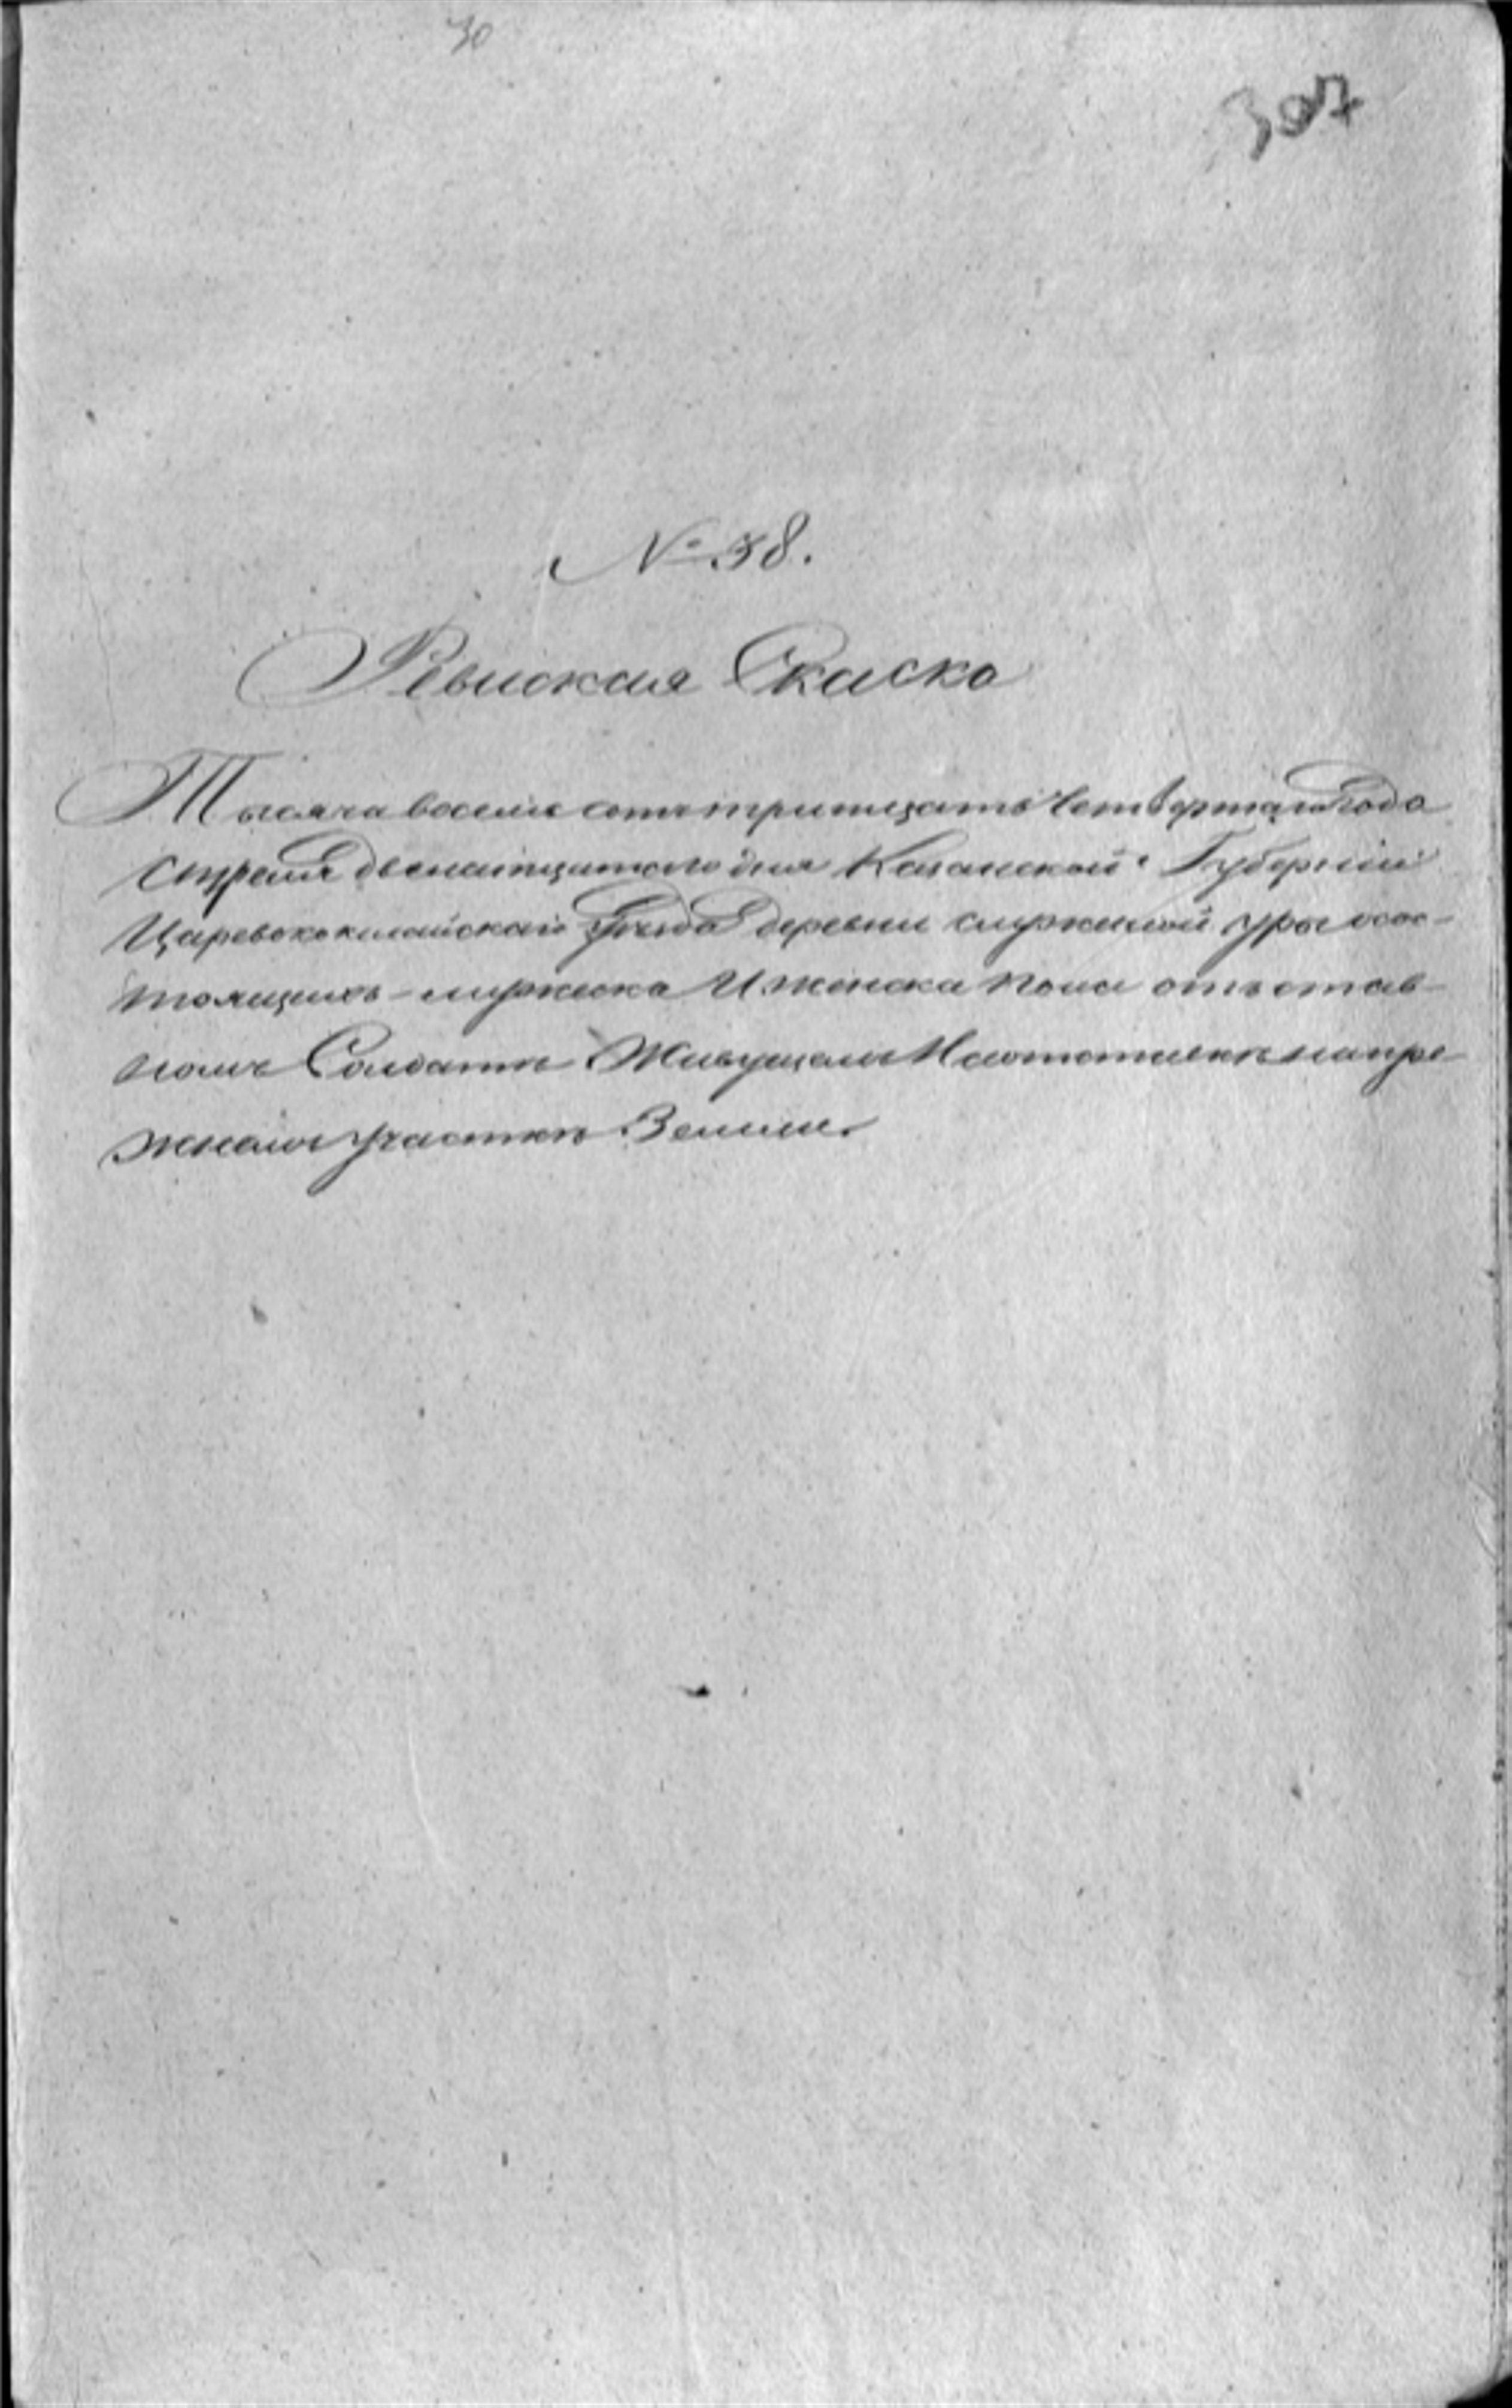 30
307
№ 38.
Ревиская Скаска
Тысяча восемь сотъ тритцать четвертаго года
Апреля двенатцатого дня Казанской Губернии
Царевококшайскаго уезда деревни служилой уры осос-
тоящихъ мужеска И женска пола отъ отав-
номъ Солдате Живущемъ
жнемъ участке Земли